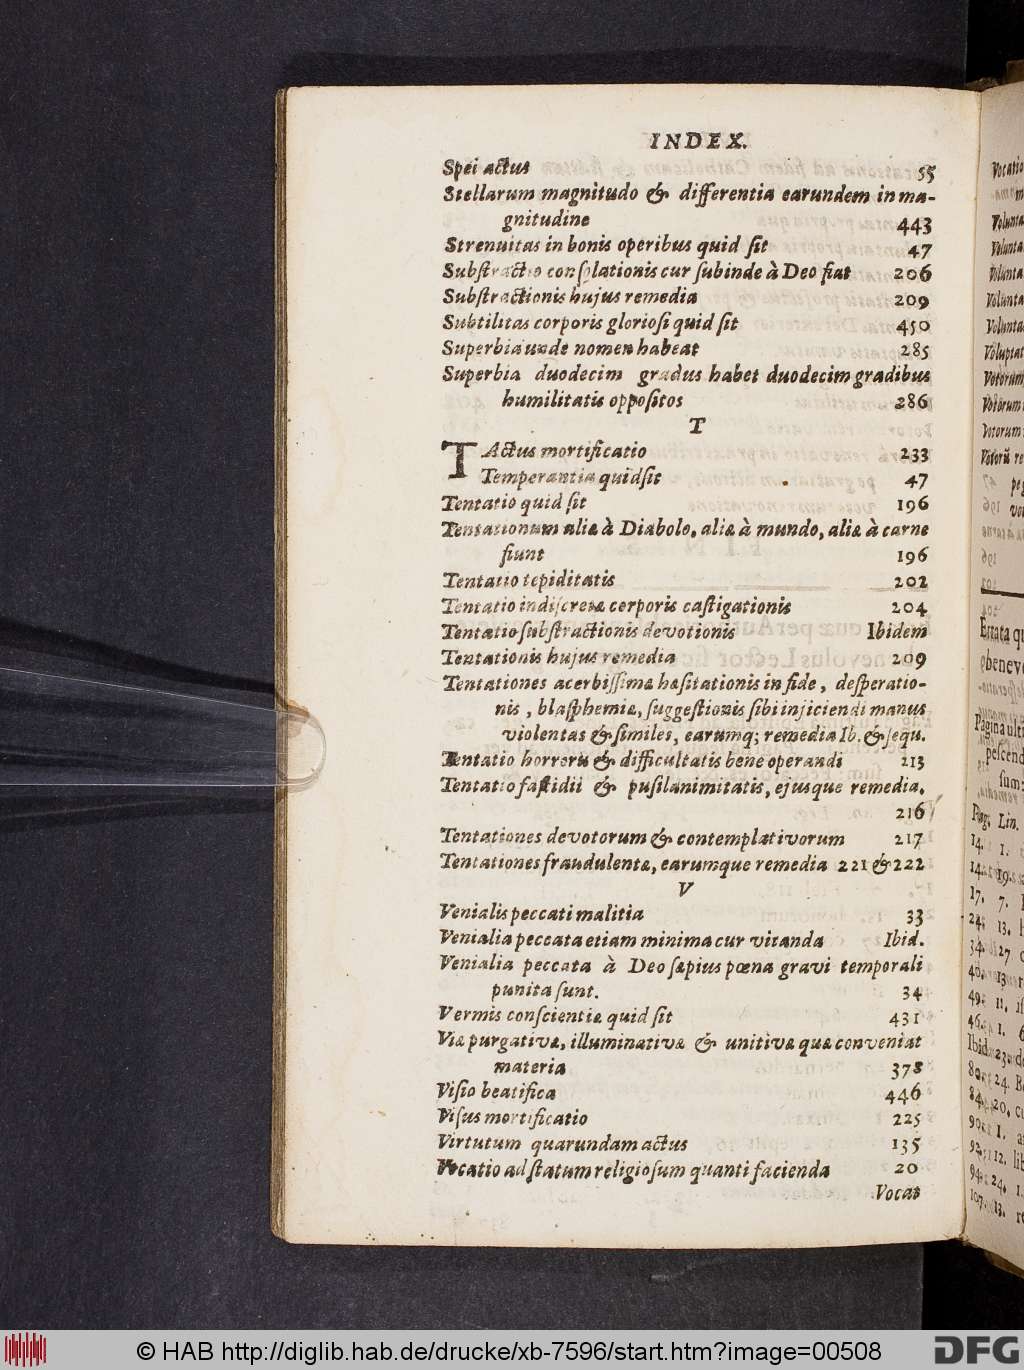 INDEX.
Spei actus 55
Stellarum magnitudo & differentia earundem in ma-
gnitudine 443
Strenuitas in bonis operibus quid ſit 47
Subſtractio conſolationis cur ſubinde à Deo fiat 206
Subſtractionis hujus remedia 209
Subtilitas corporis glorioſi quid ſit 450
Superbia unde nomen habeat 285
Superbia duodecim gradus habet duodecim gradibus
humilitatis oppoſitos 286
T
TActus mortificatio 233
Temperantia quid ſit 47
Tentatio quid ſit 196
Tentationum aliæ à Diabolo, aliæ à mundo, aliæ à carne
fiunt 196
Tentatio tepiditatis 202
Tentatio indiſcretæ corporis caſtigationis 204
Tentatio ſubſtractionis devotionis Ibidem
Tentationis hujus remedia 209
Tentationes acerbiſſimæ hæſitationis in fide, deſperatio-
nis, blaſphemiæ, ſuggeſtionis ſibi injiciendi manus
violentas & ſimiles, earumq; remedia Ib. & ſequ.
Tentatio horroris & difficultatis bene operandi 213
Tentatio faſtidii & puſilanimitatis, ejusque remedia.
216
Tentationes devotorum & contemplativorum 217
Tentationes fraudulentæ, earumque remedia 221 & 222
V
Venialis peccati malitia 33
Venialia peccata etiam minima cur vitanda Ibid.
Venialia peccata à Deo ſæpius pœna gravi temporali
punita ſunt. 34
Vermis conſcientiæ quid ſit 431
Viæ purgativæ, illuminativæ & unitivæ quæ conveniat
materia 378
Viſio beatifica 446
Viſus mortificatio 225
Virtutum quarundam actus 135
Vocatio ad ſtatum religioſum quanti facienda 20
Vocat
© HAB http://diglib.hab.de/drucke/xb-7596/start.htm?image=00508
DFG